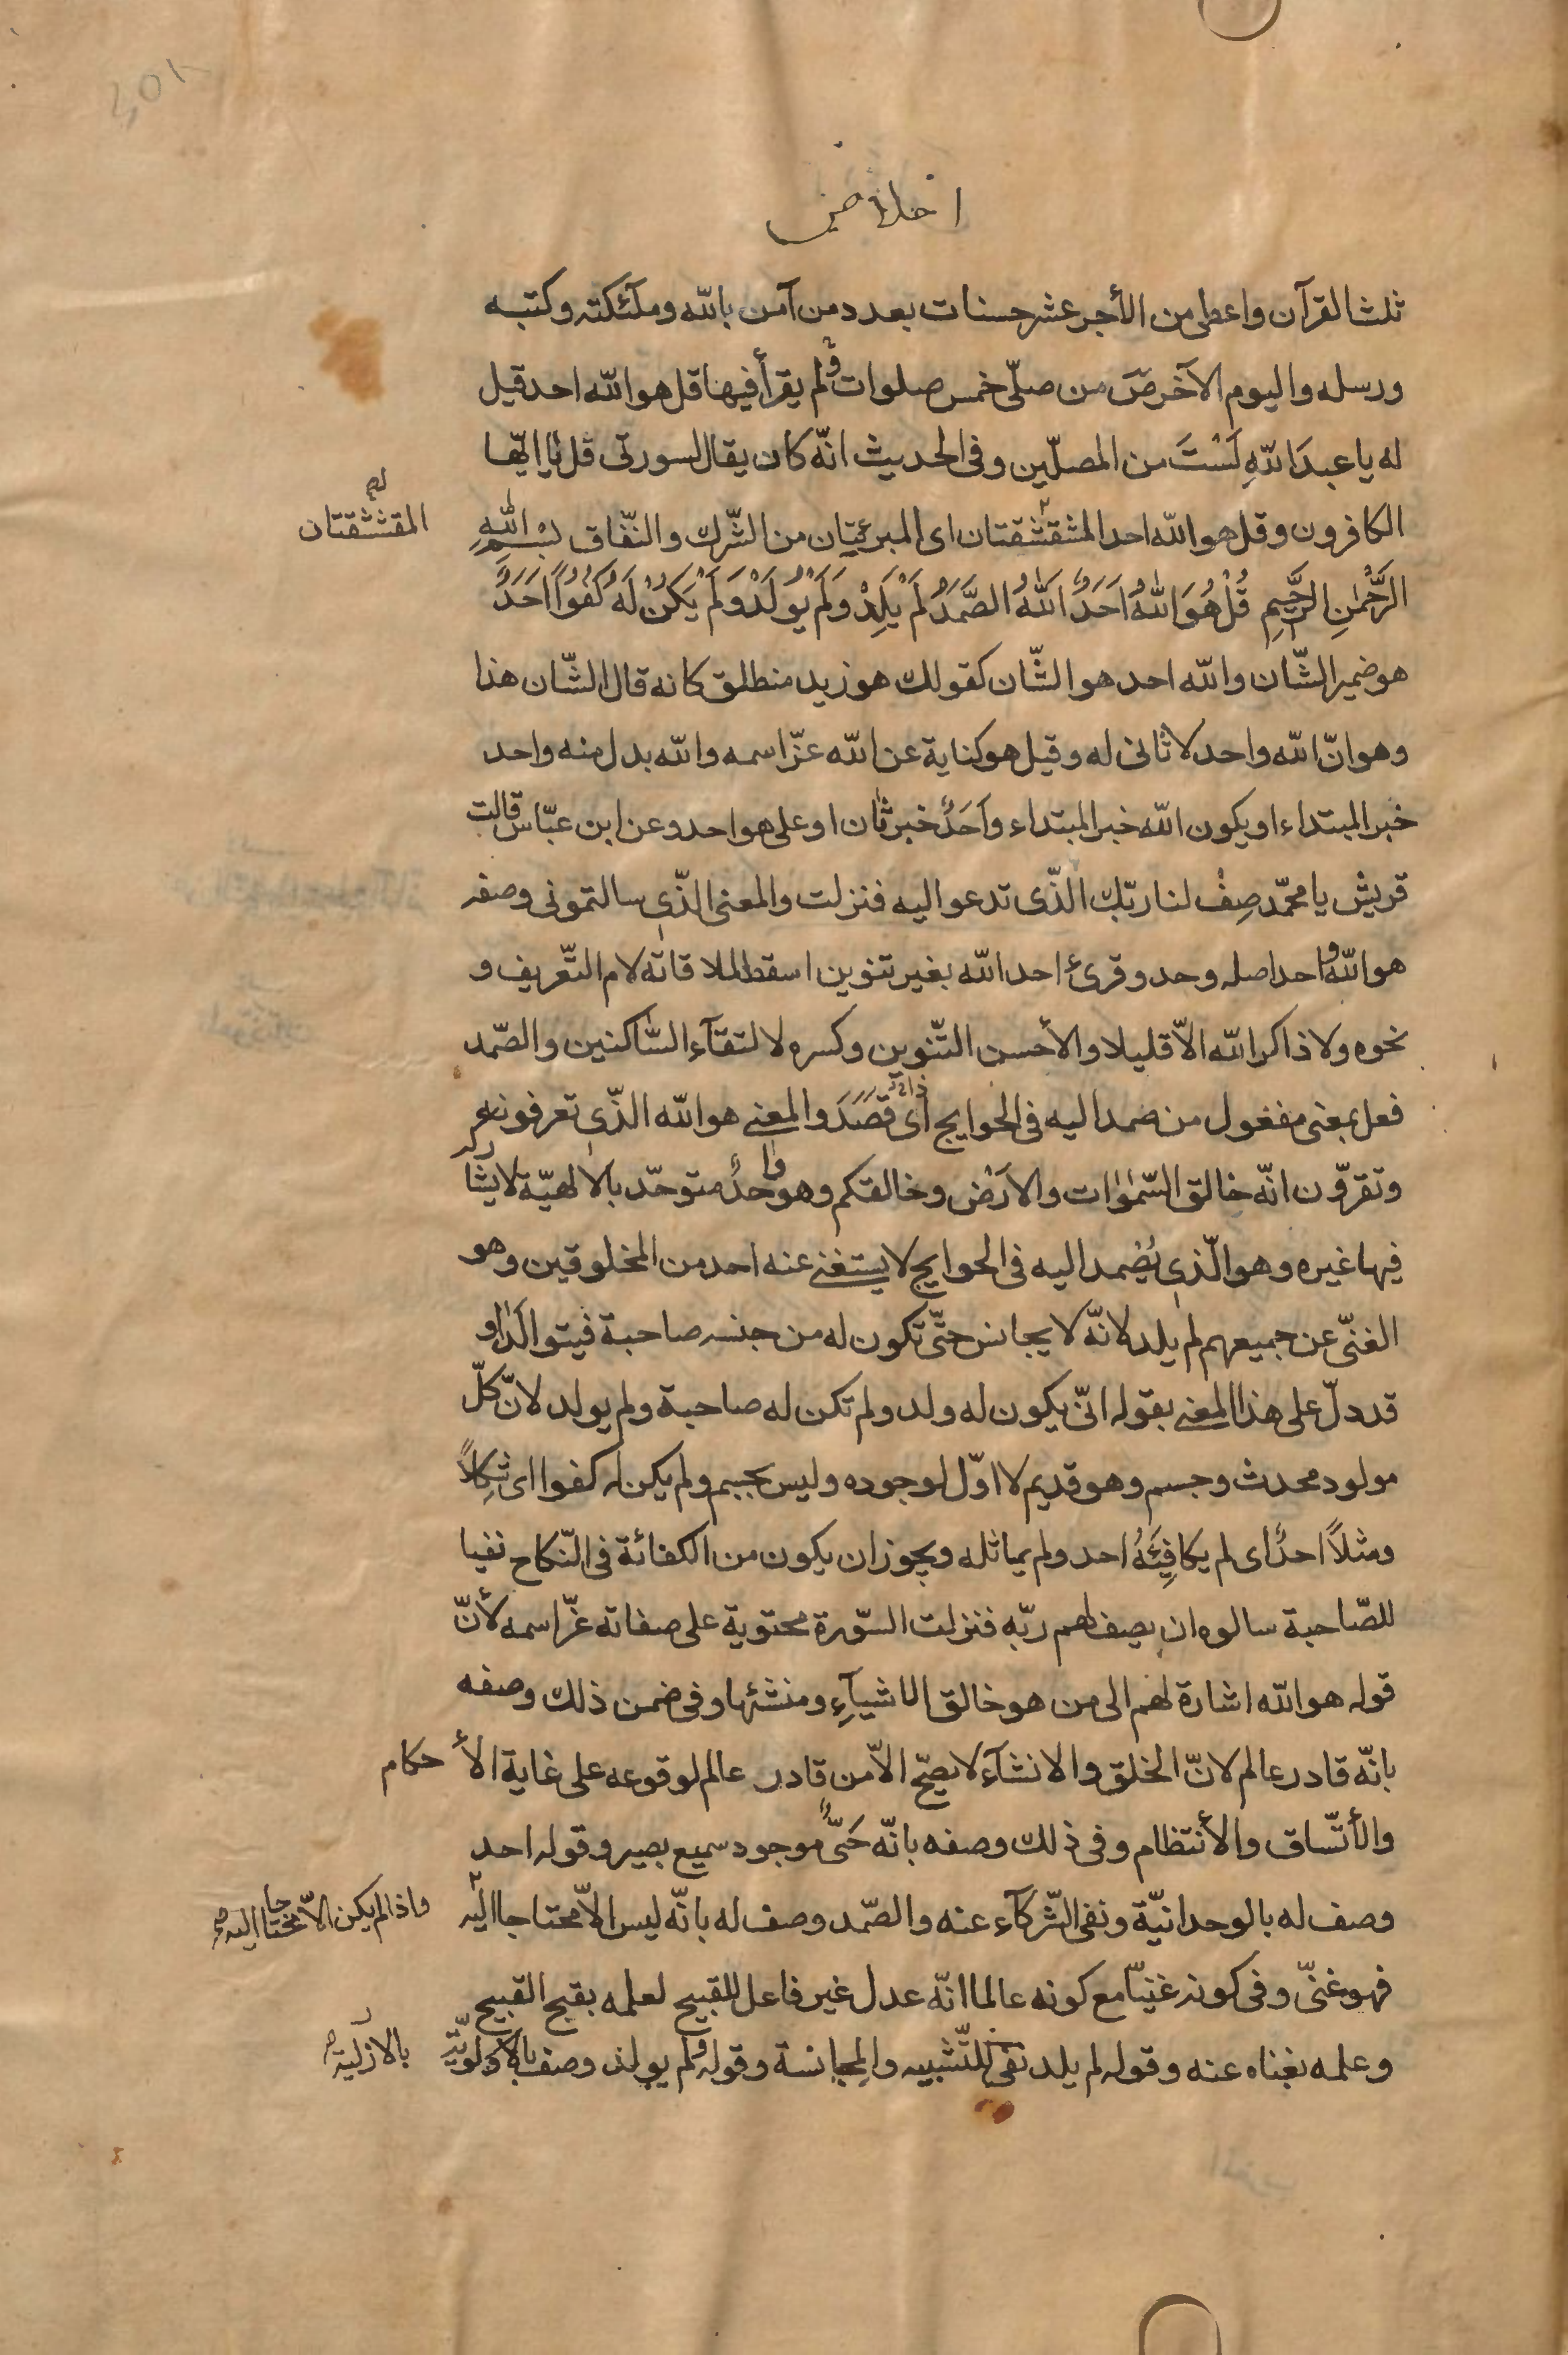 اخلاص
ثلث القرآن واعطى من الأجر عشر حسنات بعدد من آمن بالله وملئكته وكتبه
ورسله واليوم الآخر صَ من صلّى خمس صلوات ولم يقرأ فيها قل هو الله احد قيل
له يا عبدَ اللهِ لَسْتَ من المصلّين وفى الحديث انّه كان يقال لسورتى قل يا ايّها
الكافرون وقل هو الله احد المشقشقتان اى المبرئتان من الشّرك والنّفاق بِسْمِ اللهِ
المقشقشتان
الرَّحْمٰنِ الرَّحِيمِ قُلْ هُوَ اللهُ اَحَدٌ اَللهُ الصَّمَدُ لَمْ يَلِدْ وَلَمْ يُولَدْ وَلَمْ يَكُنْ لَهُ كُفُوًا اَحَدٌ
هو ضمير الشّان والله احد هو الشّان كقولك هو زيد منطلق كانه قال الشّان هذا
وهو انّ الله واحد لا ثانى له وقيل هو كناية عن الله عزّ اسمه والله بدل منه واحد
خبر المبتداء او يكون الله خبر المبتداء وأَحَدٌ خبر ثان او على هو احد وعن ابن عبّاس قالت
قريش يا محمّد صِفْ لنا ربّك الذّى تدعو اليه فنزلت والمعنى الذّى سالتمونى وصفه
هو الله واحد اصله وحد وقرئ احد الله بغير تنوين اسقط لملاقاته لام التّعريف و
نحوه ولا ذاكر الله الاّ قليلا والأحسن التّنوين وكسره لالتقآء السّاكنين والصّمد
فعل بمعنى مفغول من صمد اليه فى الحوايج اى قَصَدَ والمعنى هو الله الذّى تعرفونه
وتقرّون انّه خالق السّمٰوٰات والارَضْ وخالقكم وهو واحدٌ متوحّد بالالهيّة لا يشارك
فيها غيره وهو الّذى يُصْمد اليه فى الحوايج لا يستغنى عنه احد من المخلوقين وهو
الغنىّ عن جميعهم لم يلد لانّه لا يجانس حتّى تكون له من جنسه صاحبة فيتوالَدٰا و
قد دلّ على هذا المعنى بقوله انّى يكون له ولد ولم تكن له صاحبة ولم يولد لانّ كلّ
مولود محدث وجسم وهو قديم لا اوّل لوجوده وليس بجسم ولم يكن له كفوا اى شِكلاً
ومثلاً احدٌ اى لم يكافِئَهُ احد ولم يماثله ويجوز ان يكون من الكفائة فى النّكاح نفيا
للصّاحبة سالوه ان يصف لهم ربّه فنزلت السّورة محتوية على صفاته عزّ اسمه لأنّ
قوله هو الله اشارة لهم الى من هو خالق الاشيآءِ ومنشئها وفى ضمن ذلك وصفه
بانّه قادر عالم لانّ الخلق والانشآء لا يصحّ الاّ من قادر عالم لوقوعه على غاية الأحكام
والأتّساق والأنتظام وفى ذلك وصفه بانّه حَىٌّ موجود سميع بصير وقوله احد
وصف له بالوحدانيّة ونفى الشّركآء عنه والصّمد وصف له بانّه ليس الاّ محتاجا اليه
واذا لم يكن الاّ محتاجا اليه
فهو غنىّ وفى كونه غنيّا مع كونه عالما انّه عدل غير فاعل للقبيح لعلمه بقبح القبيح
وعلمه بغناه عنه وقوله لم يلد نفى للتّشبيه والمجانسة وقوله ولم يولد وصف بالاولويّة
بالازليّة